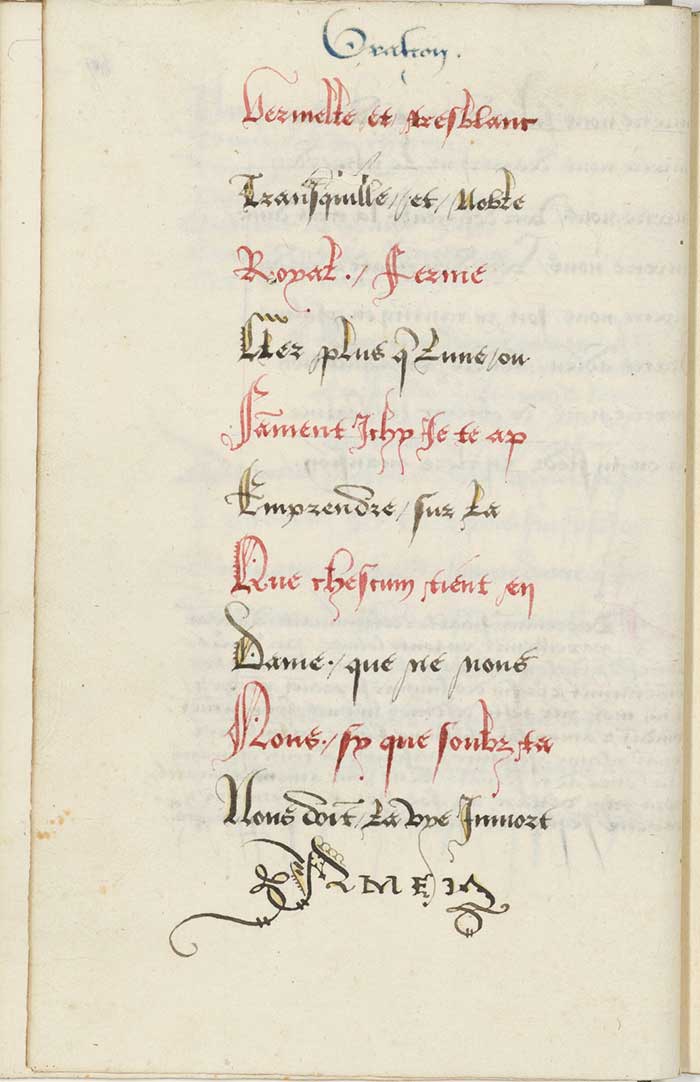 Oration.
Vermelle et tresblanc
Transquille / et / Noble
Royal . / Ferme
Mer plus q̄ Lune / ou
Fāment Ichy Je te ap
Emprendre / sur La
Que chescum tient en
Dame . / que ne nous
Nous . / sy que soubz ta
Nous doit / La vye Inmort